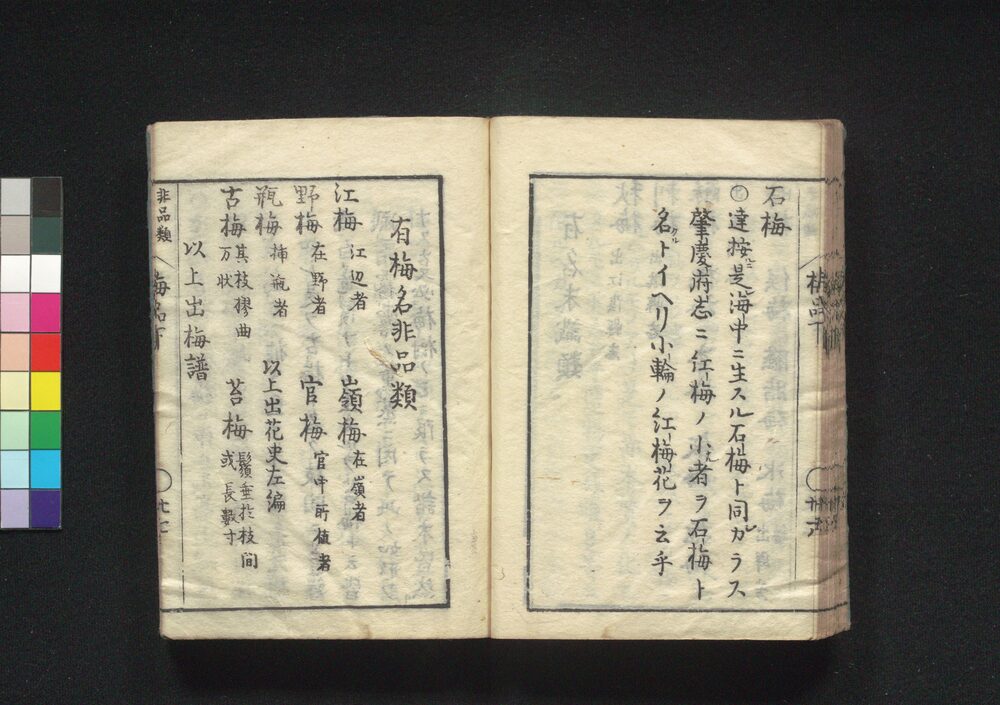 石梅
達按ニ是レ海中ニ生スル石梅ト同カラス
肇慶府志ニ紅梅ノ小者ヲ石梅ト
名クルトイヘリ小輪ノ紅梅花ヲ云乎
梅品下
有梅名非品類
江梅 江辺者 嶺梅 在嶺者
野梅 在野者 官梅 官中所植者
瓶梅 挿瓶者 以上出花史左編
古梅 其枝樛曲万状 苔梅 鬚垂於枝間或長數寸
以上出梅譜
非品類